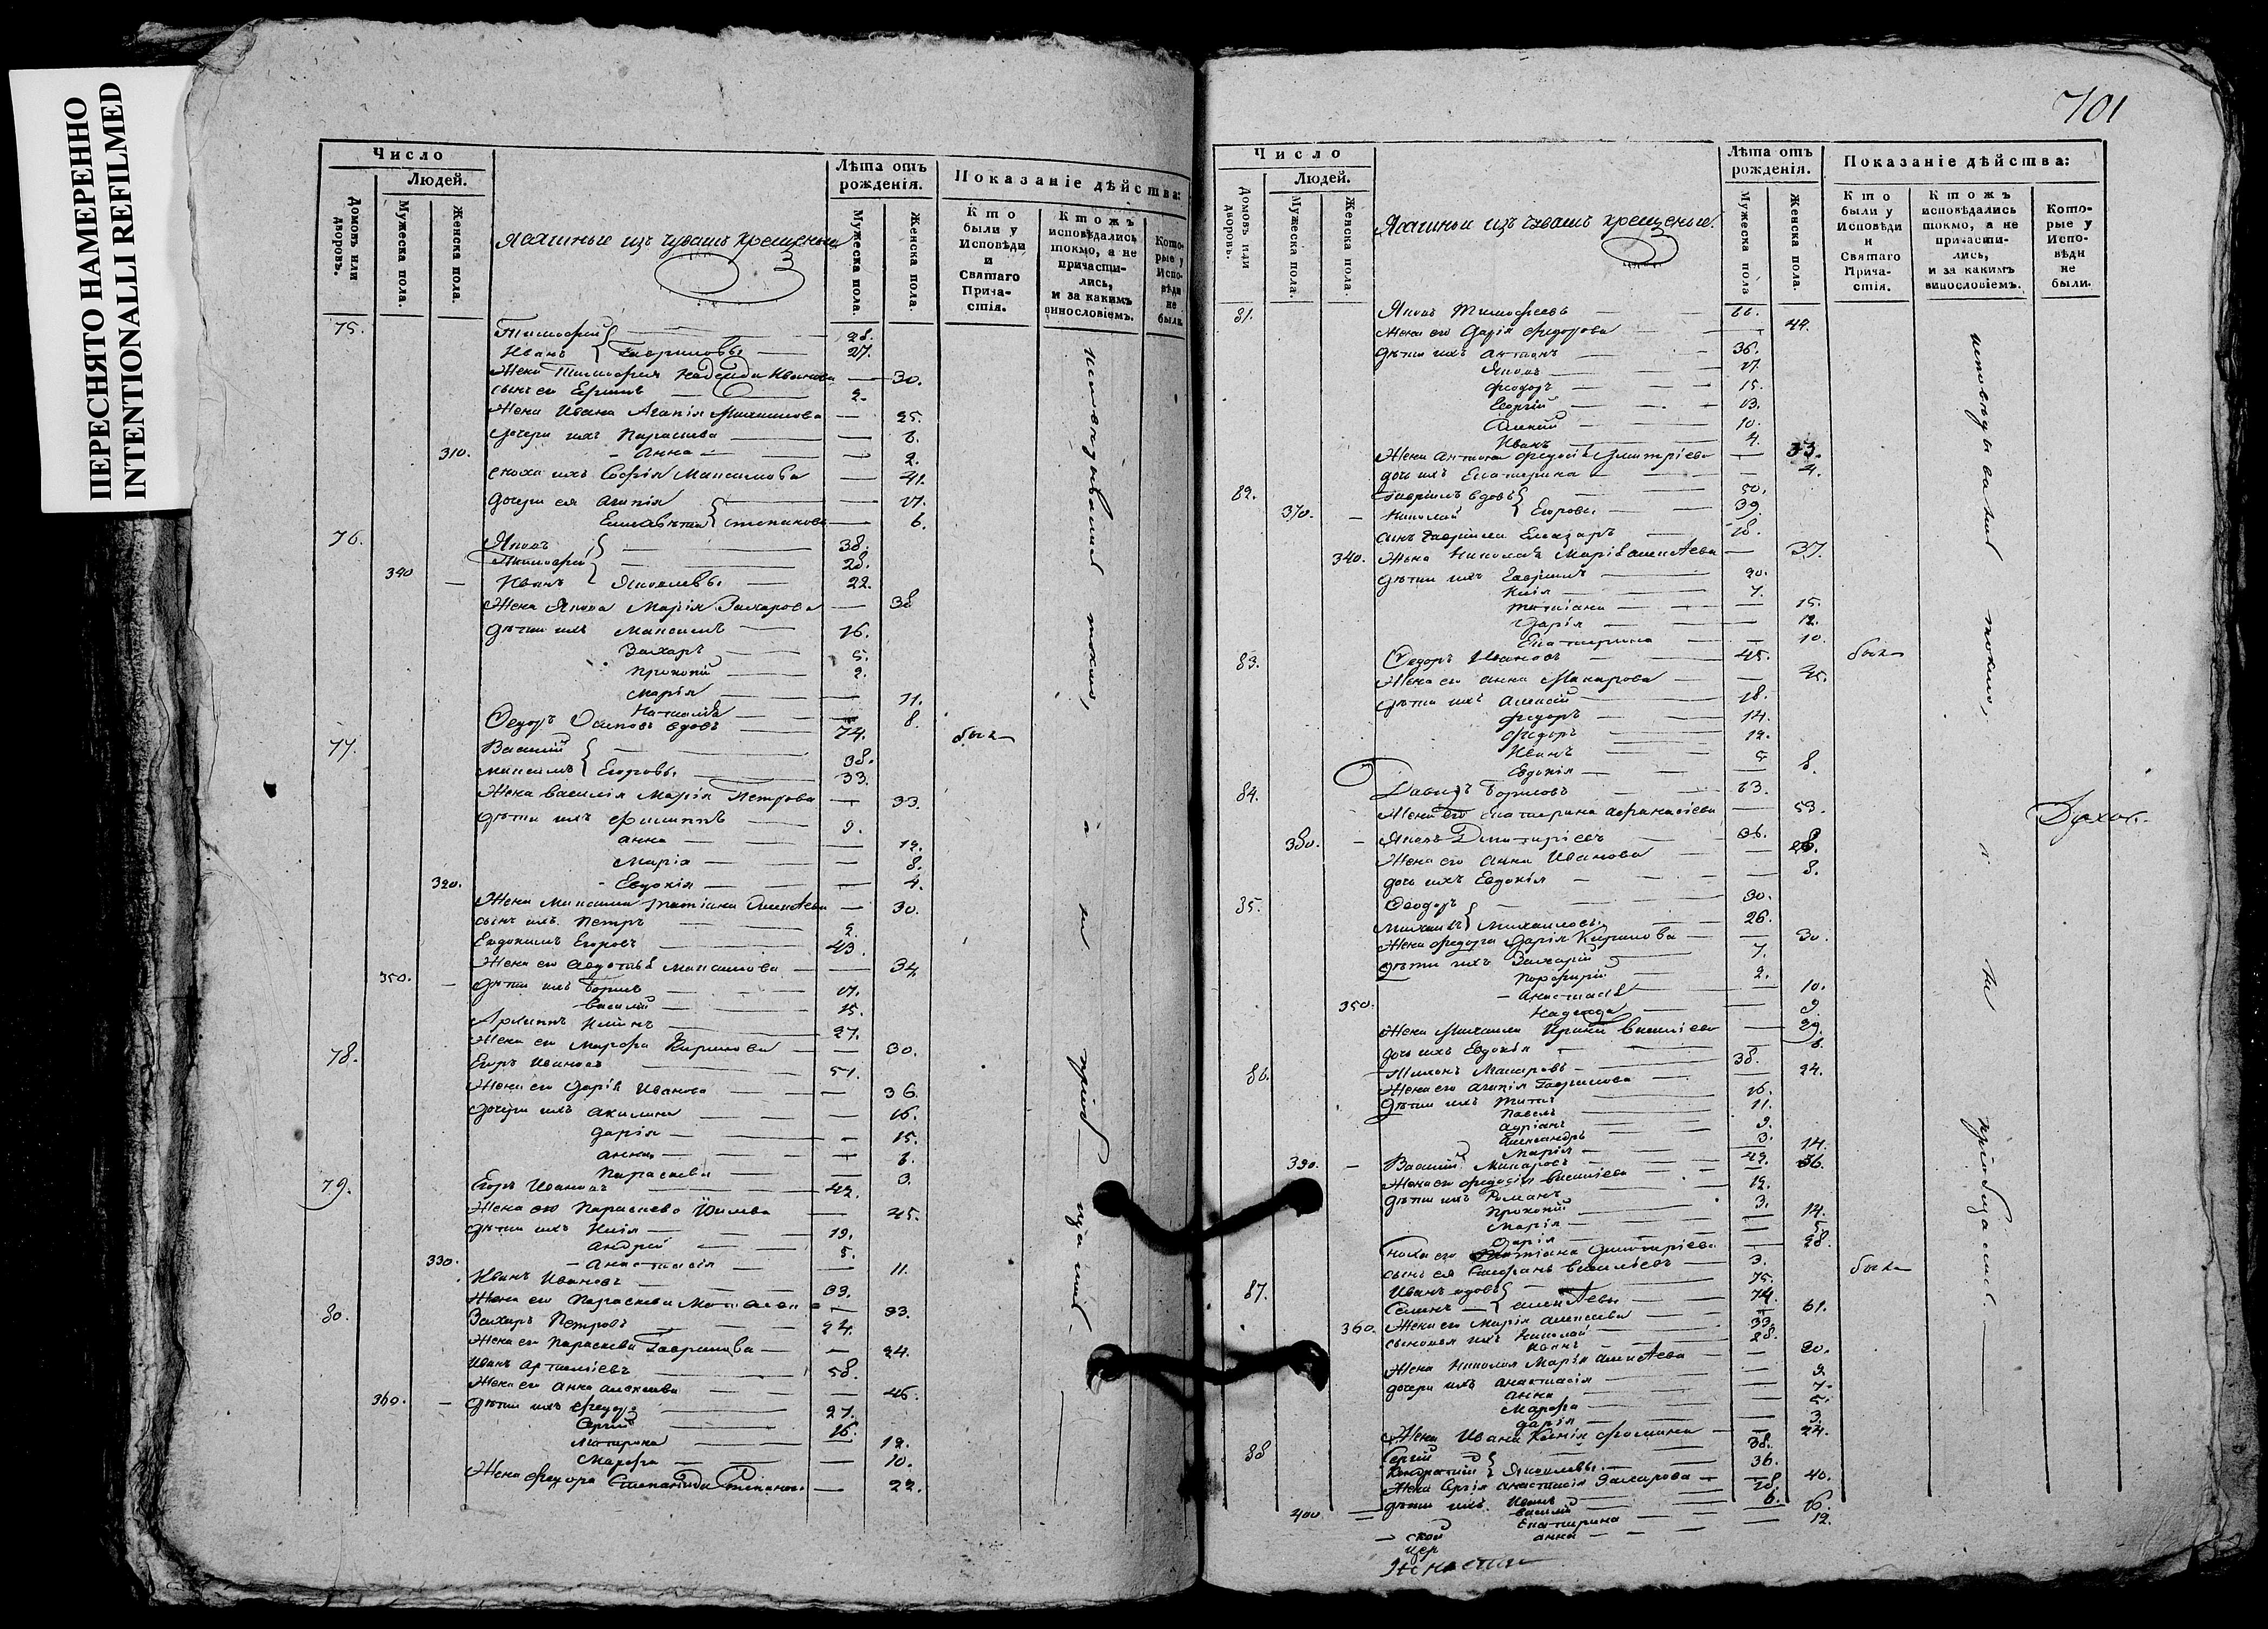 ПЕРЕСНЯТО НАМЕРЕННО
INTENTIONALLI REFILMED
Число
Людей.
Домовъ или дворовъ.
Мужеска пола.
Женска пола.
Ясачные изъ чувашъ крещеные
Лѣта отъ рожденія.
Мужеска пола.
Женска пола.
Показаніе дѣйства:
Кто были у Исповѣди и Святаго Прича-стія.
Ктожъ исповѣдались токмо, а не причасти-лись, и за какимъ винословіемъ.
Кото-рые у Испо-вѣди не были.
75. Тимофей 28.
Иванъ Гавриловы 27.
Жена Тимофея Надежда Иванова 30.
сынъ его 2.
Жена Ивана Агапія 25.
дочери ихъ Параскева 6.
310. Анна 2.
сноха ихъ Софія Максимова 41.
дочери ея Агапія 17.
Елисавета Степановы 6.
76. Яковъ 38.
Тимофей 28.
340 Иванъ Яковлевы 22.
Жена Якова Марія Захарова 38
дѣти ихъ Максимъ 16.
Захаръ 5.
Прокопій 2.
Марія 11.
Наталія 8.
Ѳедоръ Осиповъ вдовъ 74. были
77. Василій 38.
Максимъ Егоровы 33.
Жена Василія Марія Петрова 33.
дѣти ихъ Филиппъ 9.
Анна 12.
Марія 8.
320. Евдокія 4.
Жена Максима Татіана Алексѣева 30.
сынъ ихъ Петръ 2.
Евдокимъ Егоровъ 43.
Жена его Авдотья Максимова 34
350. дѣти ихъ Борисъ 17.
Василій 15.
Архиппъ 27.
Жена его Марфа Кирилова 30.
78. Егоръ Ивановъ 51.
Жена его Дарія Иванова 36.
дочери ихъ Акилина 16.
Дарія 15.
Анна 6.
Параскева 3.
79. Егоръ Ивановъ 42.
Жена его Параскева 45.
дѣти ихъ Илія 19.
Андрей 5.
330. Анастасія 11.
Иванъ Ивановъ 33.
Жена его Параскева 33.
80. Захаръ Петровъ 24.
Жена его Параскева Гаврилова 24.
Иванъ Артеміевъ 58.
Жена его Анна Алексѣева 46.
360. дѣти ихъ Ѳедоръ 27.
Сергій 16.
Матрона 12.
Марфа 10.
Жена Ѳедора Степанида Степанова 22.
исповѣдывались токмо, а не пріоб
701
Число
Людей.
Домовъ или дворовъ.
Мужеска пола.
Женска пола.
Ясачные изъ чувашъ крещеные.
Лѣта отъ рожденія.
Мужеска пола
Женска пола.
Показаніе дѣйства:
Кто были у Исповѣди и Святаго Прича-стія.
Ктожъ исповѣдались токмо, а не причасти-лись, и за какимъ винословіемъ.
Кото-рые у Испо-вѣди не были.
81. Яковъ Тимофеевъ 66.
Жена его Дарія Ѳедорова 44.
дѣти ихъ Антонъ 36.
Яковъ 17.
Ѳеодоръ 15.
Георгій 13.
Алексій 10.
Иванъ 4.
Жена Антона Ѳедосія Дмитріева 33.
дочь ихъ Екатерина 4.
82. Гавріилъ вдовъ 50.
370. Николай Егоровы 39.
сынъ Гавріила Елеазаръ 18.
340. Жена Николая Марія Алексѣева 37.
дѣти ихъ Гавріилъ 20.
Илія 7.
Татіана 15.
Дарія 12.
Екатерина 10.
83. Ѳедоръ Ивановъ 45. были
Жена его Анна Макарова 45.
дѣти ихъ Алексѣй 18.
Ѳедоръ 14.
Ѳедоръ 12.
Иванъ 5
Евдокія 8.
84. Давидъ Борисовъ 63.
Жена его Екатерина Афанасіева 53.
380. Яковъ Димитріевъ 36.
Жена его Анна Иванова
дочь ихъ Евдокія 8.
85. Ѳеодоръ 30.
Михаилъ Михайловы 26.
Жена Ѳедора Дарія Кирилова 30.
дѣти ихъ Захарій 7.
Порфирій 2.
350. Анастасія 10.
Надежда 9.
Жена Михаила Ирина Василіева 29.
дочь ихъ Евдокія 6.
86. Тихонъ Макаровъ 38.
Жена его Агапія Гаврилова 24.
дѣти ихъ Титъ 16.
Павелъ 11.
Адріанъ 9.
Александръ 3.
Марія 14.
390. Василій Макаровъ 49.
Жена его Ѳедосія Василіева 36.
дѣти ихъ Романъ 12.
Прокопій 3.
Марія 14.
Дарія 5.
сноха его Татіана Димитріева 28.
сынъ ея Стефанъ Василіевъ 3. были
87. Иванъ вдовъ 75.
Семенъ Алексѣевы 74.
360. Жена его Марія Алексѣева 61.
сыновья ихъ Николай 33.
Иванъ 28.
Жена Николая Марія Алексѣева 30.
дочери ихъ Анастасія 9.
Анна 7.
Марфа 5.
Дарія 3.
Жена Ивана Ксенія 24.
88 Сергій 38.
Кондратій Яковлевы 36.
Жена Сергія Анастасія Захарова 40.
дѣти ихъ Иванъ 18.
400 Василій 6.
Екатерина 16.
Анна 12.
исповѣдывались токмо, а не пріобщались.
Духов.